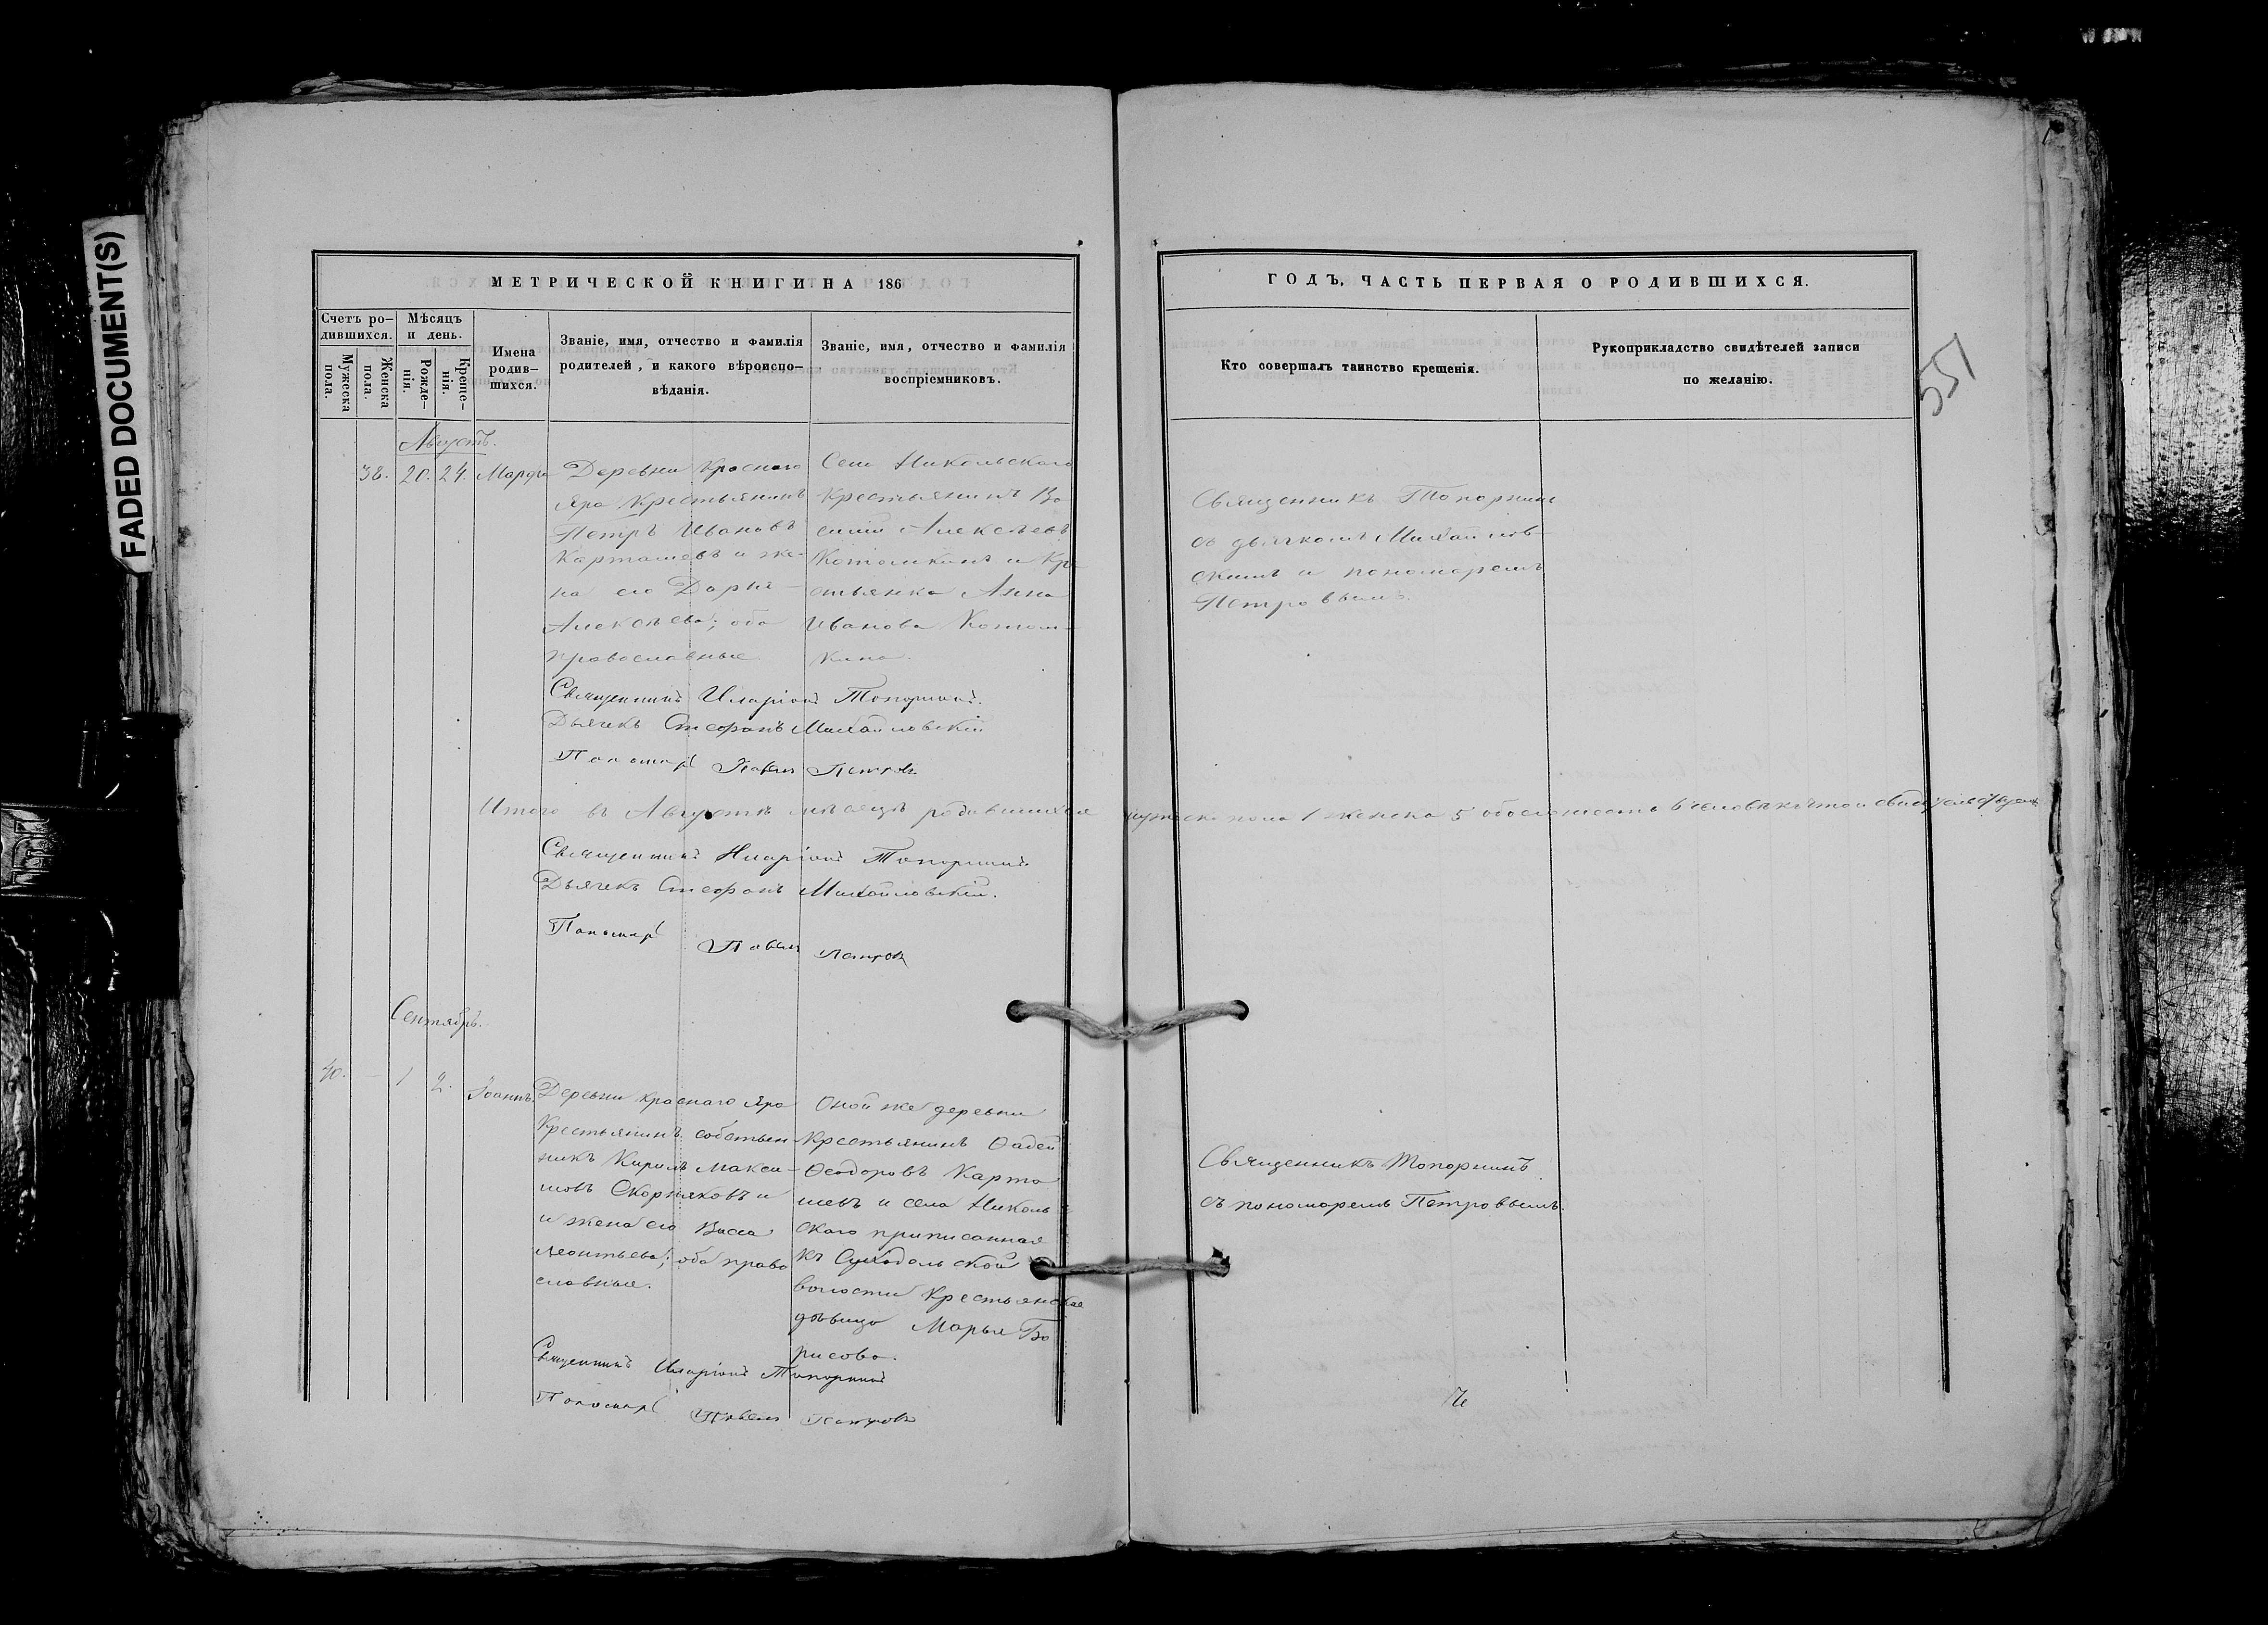 FADED DOCUMENT(S)
МЕТРИЧЕСКОЙ КНИГИ НА 186
Счетъ ро-
дившихся.
Мужеска
пола.
Женска
пола.
Мѣсяцъ
и день.
Рожде-
нія.
Креще-
нія.
Имена
родив-
шихся.
Званіе, имя, отчество и фамилія
родителей, и какого вѣроиспо-
вѣданія.
Званіе, имя, отчество и фамилія
воспріемниковъ.
Августъ.
38. 20. 24. Марфа
Деревни Краснаго
Яра Крестьянинъ
Петръ Ивановъ
Карташевъ и же-
на его Дарья
Алексѣева; оба
православные.
Села Никольскаго
Крестьянинъ Ва
силій Алексѣевъ
Котомкинъ и Кре
стьянка Анна
Иванова Котом-
кина.
Священникъ Иларіонъ Топорнинъ.
Дьячекъ Стефанъ Михайловскій
Пономарь Павелъ Петровъ
Итого въ Августѣ мѣсяцѣ родившихся мужеска пола 1 женска 5 обоего шесть человѣкъ
Священникъ Иларіонъ Топорнинъ
Дьячекъ Стефанъ Михайловскій.
Пономарь Павелъ Петровъ
Сентябрь.
40. – 1 2. Іоаннъ.
Деревни Краснаго Яра
Крестьянинъ собствен
никъ Кирилъ Макси-
мовъ Скорняковъ и
и жена его Васса
Леонтьева; оба право
славные.
Оной же деревни
Крестьянинъ Ѳадей
Ѳеодоровъ Карта
шевъ и села Николь
скаго приписанная
къ Суходольской
волости Крестьянская
дѣвица Марья Бо
рисова.
Священникъ Иларіонъ Топорнинъ
Пономарь Павелъ Петровъ
ГОДЪ, ЧАСТЬ ПЕРВАЯ О РОДИВШИХСЯ.
Кто совершалъ таинство крещенія.
Рукоприкладство свидѣтелей записи
по желанію.
551
Священникъ Топорнинъ
съ дьячкомъ Михайлов-
скимъ и пономаремъ
Петровымъ.
Священникъ Топорнинъ
съ пономаремъ Петровымъ.